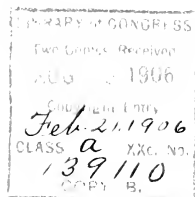 LIBRARY of CONGRESS
Two Copies Received
AUG 1906
Copyright Entry
Feb. 21, 1906
CLASS a XXc. No.
139110
COPY B.